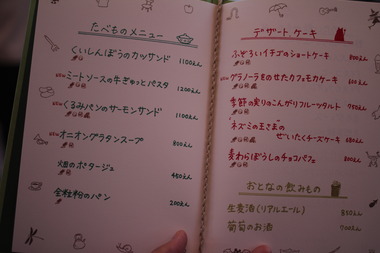 たべもののメニュー
くいしんぼうのカツサンド 1100えん
ミートソースの牛ぎゅっとパスタ 1200えん
くるみパンのサーモンサンド 1100えん
オニオングラタンスープ 800えん
畑のポタージュ 450えん
全粒粉のパン 200えん
デザート、ケーキ
ふぞろいイチゴのショートケーキ
グラノーラをのせたカフェモカケーキ
季節の実りのこんがりフルーツタルト
"ネズミの王さまの
ぜいたくチーズケーキ
麦わらぼうしのチョコパフェ 800えん
おとなの飲みもの
生麦酒(リアルエール) 850えん
葡萄のお酒 700えん